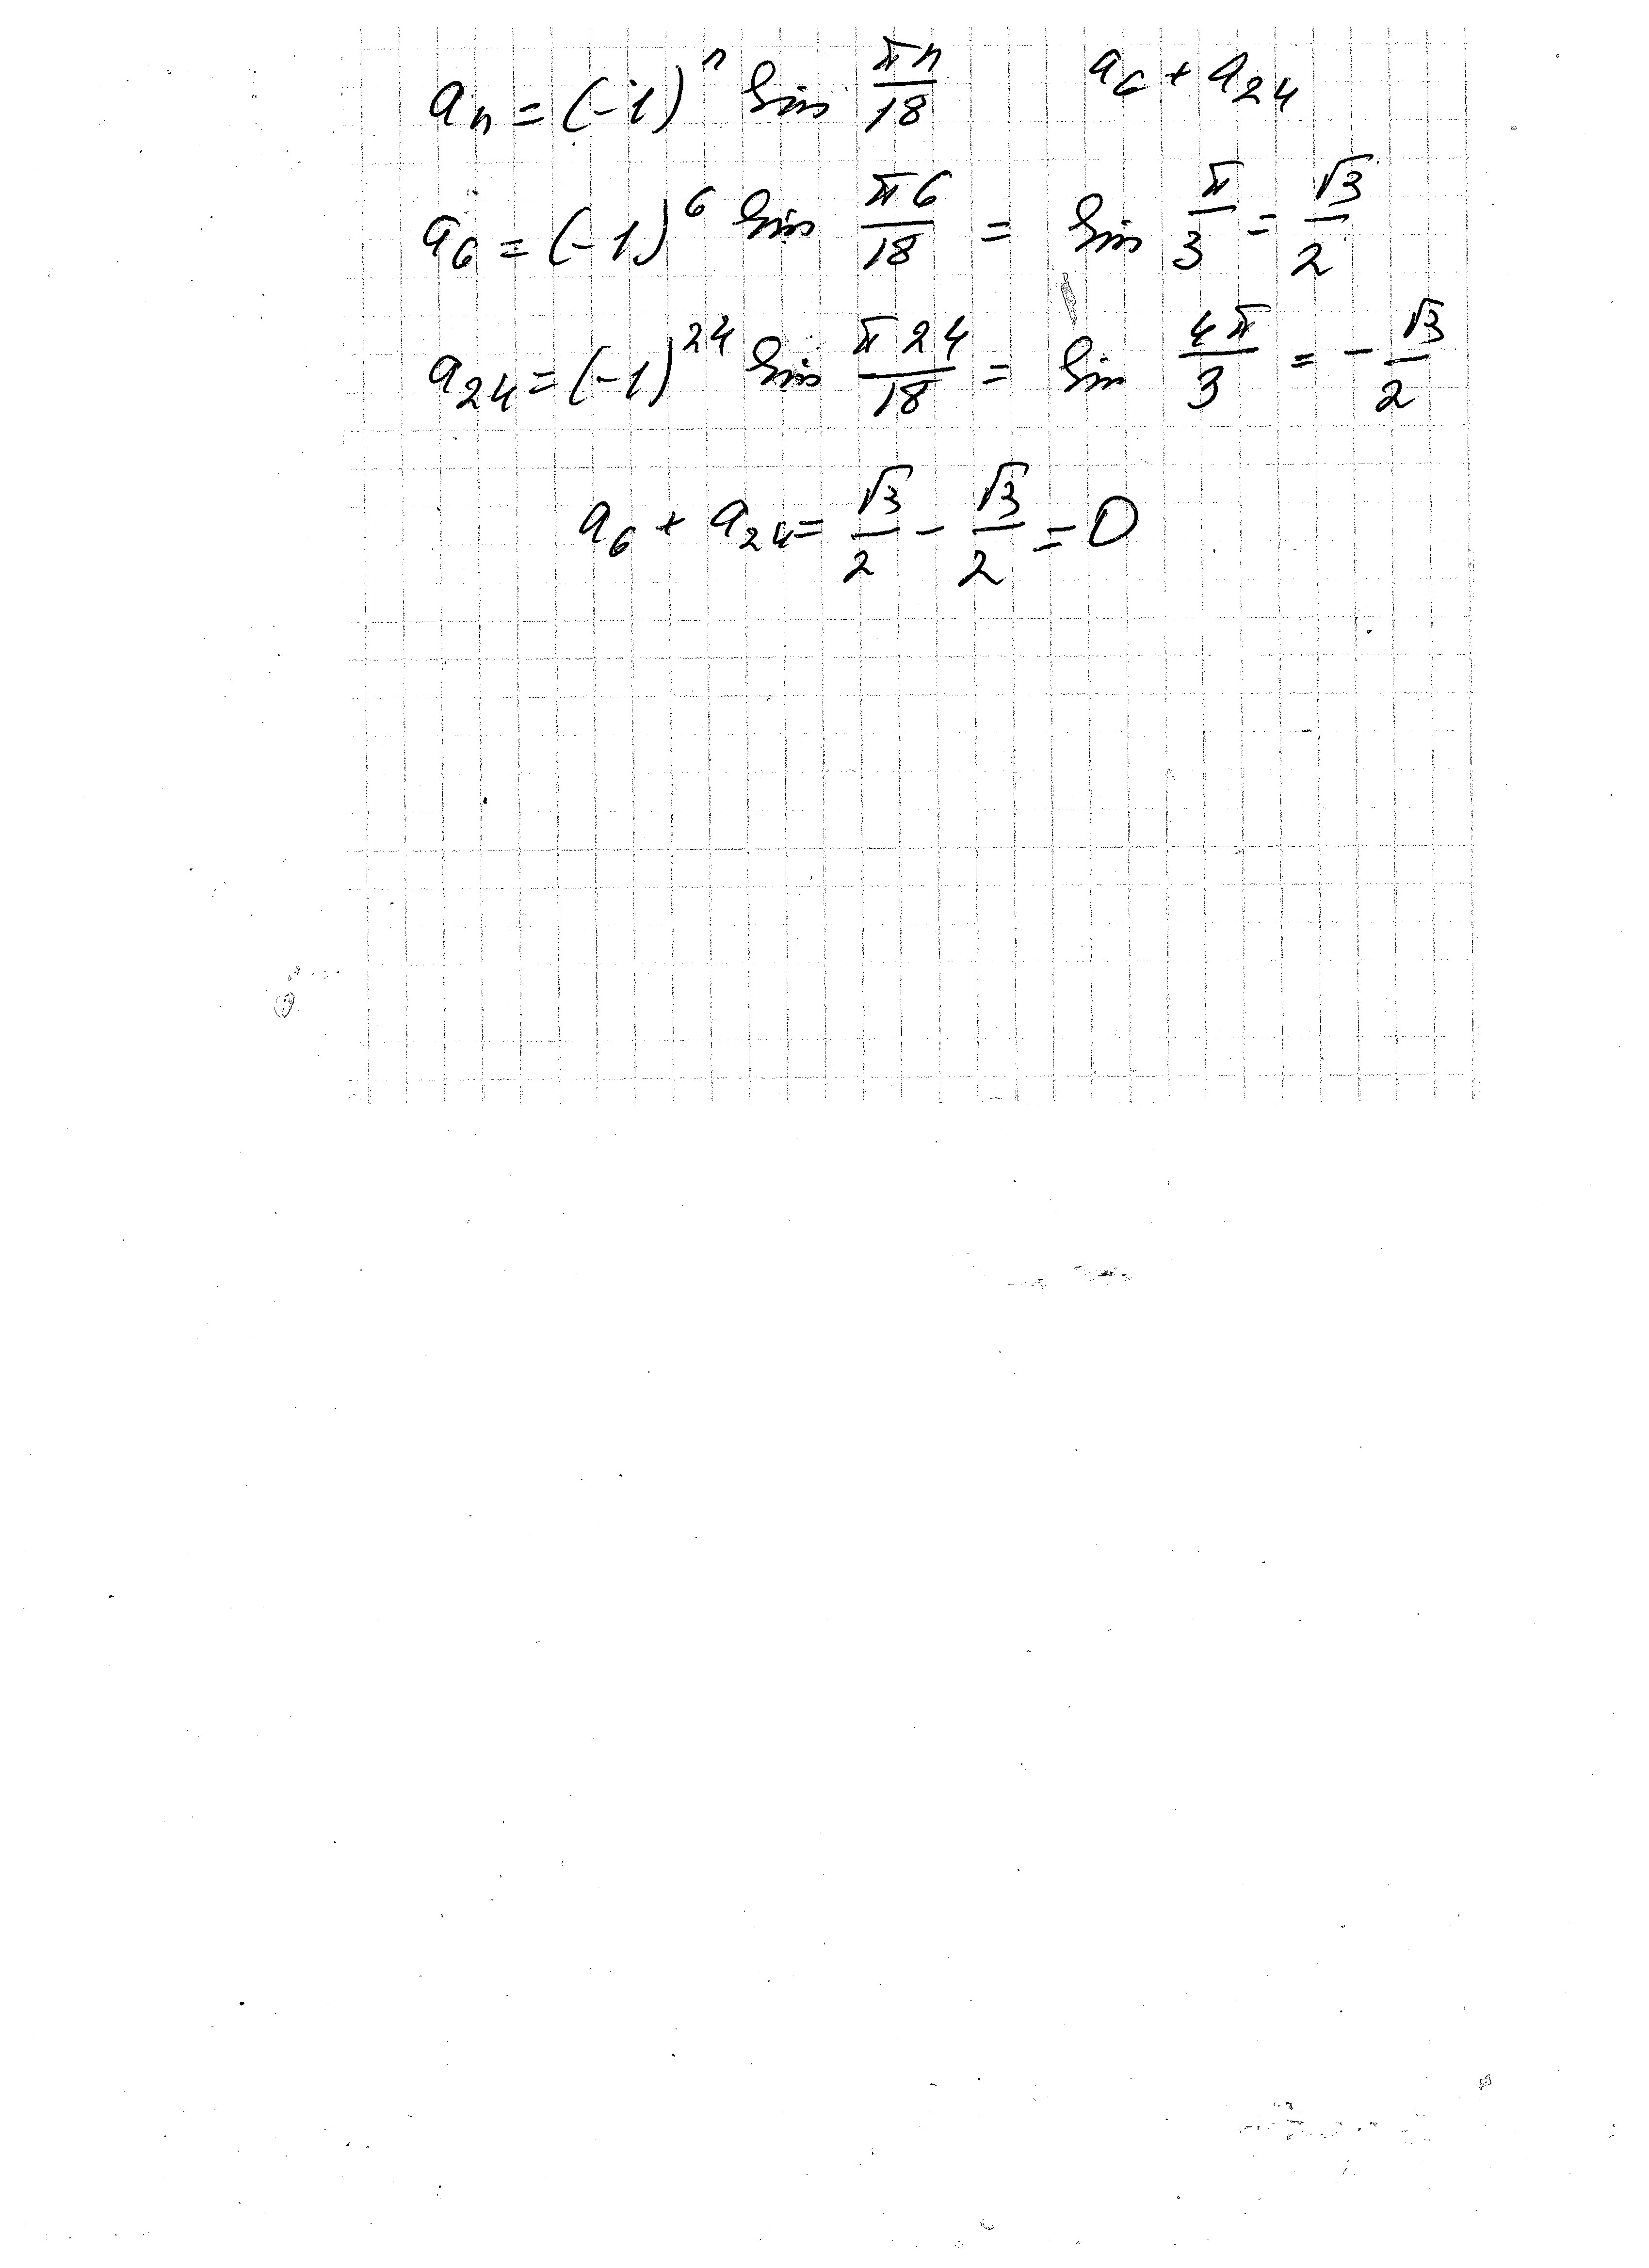 aₙ = (-1)ⁿ sin πn/18    a₆ + a₂₄
a₆ = (-1)⁶ sin π6/18 = sin π/3 = √3/2
a₂₄ = (-1)²⁴ sin π24/18 = sin 4π/3 = - √3/2
a₆ + a₂₄ = √3/2 - √3/2 = 0